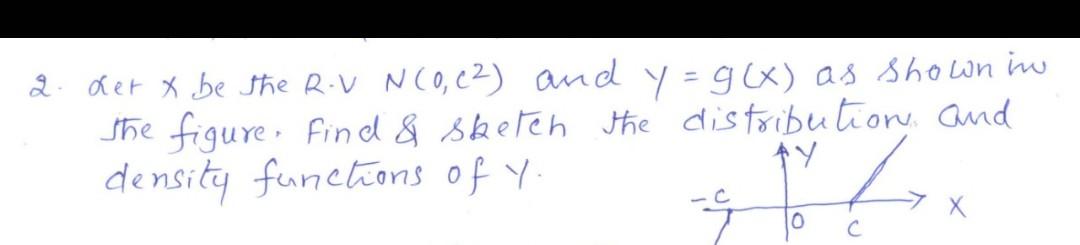 2. Let X be the R.V N(0, c²) and Y = g(X) as shown in
the figure. Find & sketch the distribution and
density functions of Y.
Y
-c
0
c
X